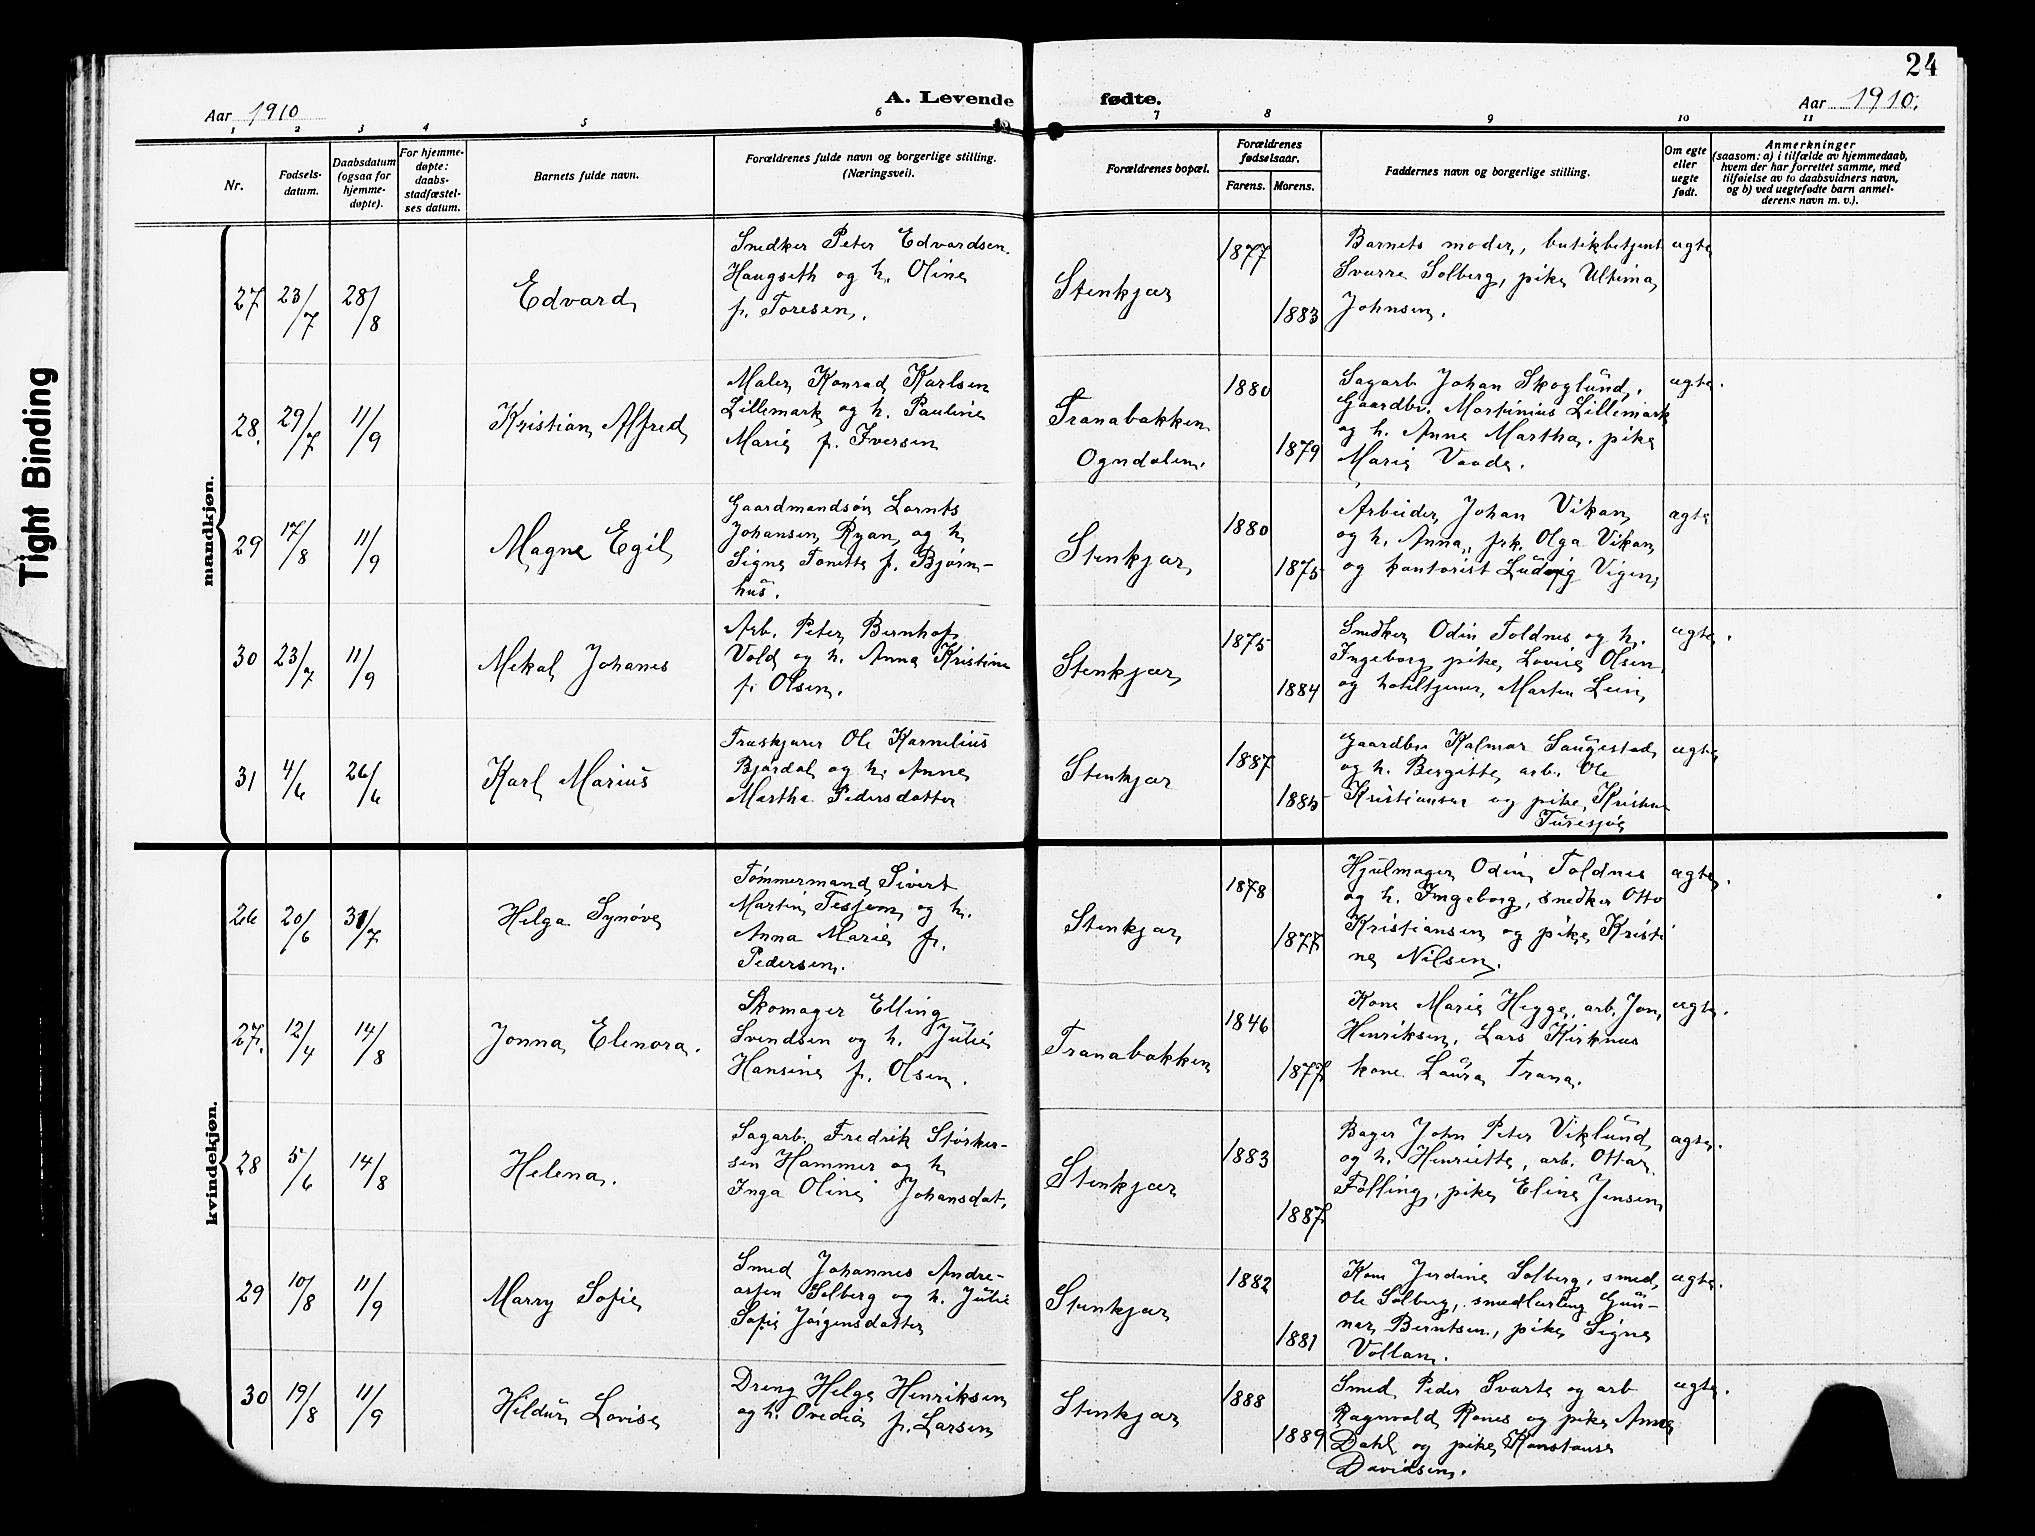 24
Aar 1910
A. Levende fødte.
Aar 1910.
1 2 3 4 5 6 7 8 9 10 11
Nr.
Fødsels-
datum.
Daabsdatum
(ogsaa for
hjemme-
døpte).
For hjemme-
døpte:
daabs-
stadfæstel-
ses datum.
Barnets fulde navn.
Forældrenes fulde navn og borgerlige stilling.
(Næringsvei).
Forældrenes bopæl.
Forældrenes
fødselsaar.
Farens. Morens.
Faddernes navn og borgerlige stilling.
Om egte
eller
uegte
født.
Anmerkninger
(saasom: a) i tilfælde av hjemmedaab,
hvem der har forrettet samme, med
tilføielse av to daabsvidners navn,
og b) ved uegtefødte barn anmel-
derens navn m. v.).
Tight Binding
mandkjøn.
27 23/7 28/8
Edvard
Snedker Peter Edvardsen
Haugseth og h. Oline
f. Toresen.
Stenkjær
1877
1883
Barnets moder, butikbetjent
Sverre Solberg, pike Ultima
Johnsen.
ægte
28. 29/7 11/9
Kristian Alfred
Maler Konrad Karlsen
Lillemark og h. Pauline
Marie f. Iversen
Tranabakken
Ogndalen.
1880
1879
Sagarb. Johan Skoglund,
Gaardbr. Martinius Lillemark
og h. Anne Martha. pike
Marie Vaade.
ægte.
29 17/8 11/9
Magne Egil
Gaardmandsøn Lornts
Johansen Ryan og h.
Signe Tonette f. Bjørn-
hus.
Stenkjær
1880
1875
Arbeider Johan Vikan
og h. Anna, frk. Olga Vikan
og kontorist Ludvig Vigen.
ægte
30 23/7 11/9
Mekal Johanes
Arb. Peter Bernhof
Vold og h. Anna Kristine
f. Olsen.
Stenkjær
1875
1884
Snedker Odin Toldnes og h.
Ingeborg pike Lovise Olsen
og hoteltjener Marten Lein
ægte.
31 4/6 26/6
Karl Marius
Træskjærer Ole Kornelius
Bjørdal og h. Anne
Martha Pedersdatter
Stenkjær
1887
1885
Gaardbr. Kalmar Saugestad
og h. Bergitte, arb. Ole
Kristiansen og pike Kristine
ægte
kvindekjøn.
26 20/6 31/7
Helga Synøve
Tømmermand Sivert
Martin Tesjem og h.
Anna Marie f.
Pedersen.
Stenkjær
1878
1877
Hjulmager Odin Toldnes
og h. Ingeborg, snedker Otto
Kristiansen og pike Kristi
ne Nilsen.
ægte.
27. 12/4 14/8
Jonna Elenora.
Skomager Elling
Svendsen og h. Julie
Hansine f. Olsen.
Tranabakken
1846
1877
Kone Marie Hegge, arb. Jon
Henriksen, Lars Kirknes
kone Laura Trana.
ægte.
28 5/6 14/8
Helena.
Sagarb. Fredrik Størker-
sen Hammer og h.
Inga Oline Johansdat.
Stenkjær
1883
1887
Bager John Peter Viklund
og h. Henriette, arb. Ottar
Følling, pike Eline Jensen
ægte.
29 10/8 11/9
Marry Sofie
Smed Johannes Andre-
assen Solberg og h. Julie
Sofie Jørgensdatter
Stenkjær
1882
1881
Kone Jerdine Solberg, smed
Ole Solberg, smedlærling Gun-
nar Berntsen, pike Signe
Vollan.
ægte.
30 19/8 11/9
Hildur Lovise
Dreng Helge Henriksen
og h. Ovedia f. Larsen
Stenkjær
1888
1889
Smed Peder Svarte og arb
Ragnvald Rones og pike Anna
Dahl og pike Konstanse
Davidsen.
ægte.